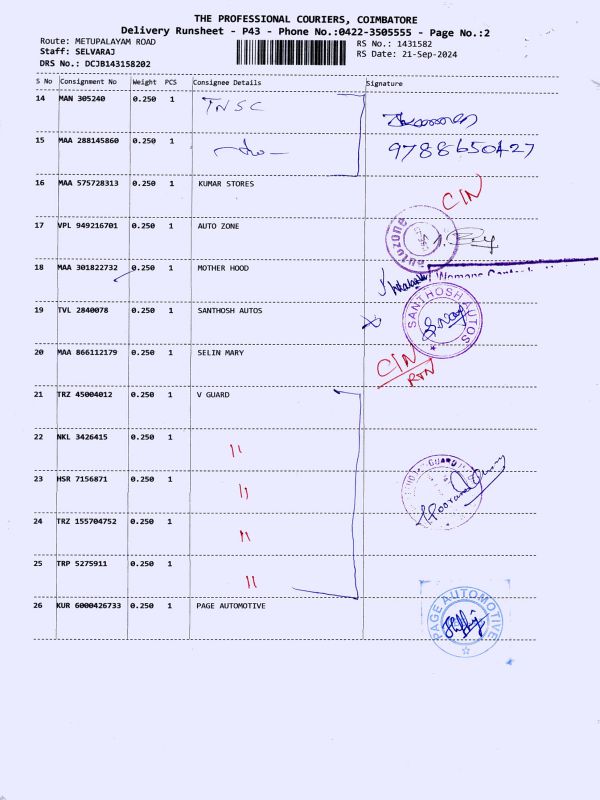 THE PROFESSIONAL COURIERS, COIMBATORE
Delivery Runsheet - P43 - Phone No.:0422-3505555 - Page No.:2
Route: METUPALAYAM ROAD
RS No.: 1431582
Staff: SELVARAJ
RS Date: 21-Sep-2024
DRS No.: DCJB143158202
S No Consignment No Weight PCS Consignee Details Signature
14 MAN 305240 0.250 1 TNSC
15 MAA 288145860 0.250 1 9788650427
16 MAA 575728313 0.250 1 KUMAR STORES CIN
17 VPL 949216701 0.250 1 AUTO ZONE autozone
18 MAA 301822732 0.250 1 MOTHER HOOD
19 TVL 2840078 0.250 1 SANTHOSH AUTOS SANTHOSH AUTOS
20 MAA 866112179 0.250 1 SELIN MARY CIN
RTN
21 TRZ 45004012 0.250 1 V GUARD
22 NKL 3426415 0.250 1 "
23 HSR 7156871 0.250 1 "
24 TRZ 155704752 0.250 1 "
25 TRP 5275911 0.250 1 "
26 KUR 6000426733 0.250 1 PAGE AUTOMOTIVE PAGE AUTOMOTIVE